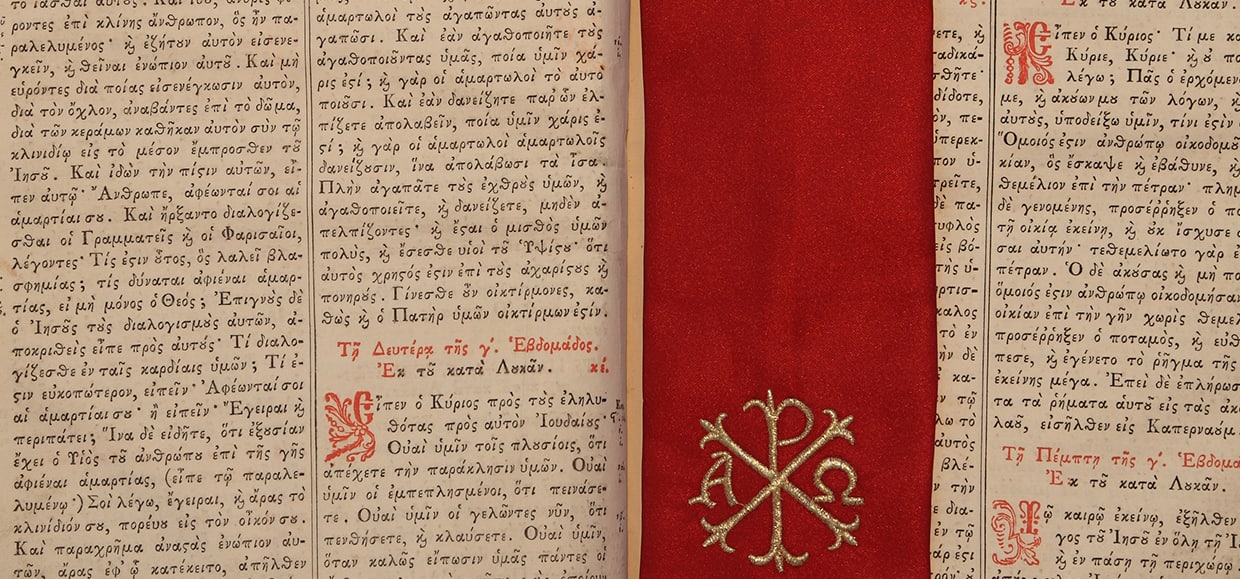 ροντες ἐπὶ κλίνης ἄνθρωπον, ὃς ἦν πα-
ραλελυμένος· ϗ ἐζήτουν αὐτὸν εἰσενε-
γκεῖν, ϗ θεῖναι ἐνώπιον αὐτοῦ. Καὶ μὴ
εὑρόντες διὰ ποίας εἰσενέγκωσιν αὐτὸν,
διὰ τὸν ὄχλον, ἀναβάντες ἐπὶ τὸ δῶμα,
διὰ τῶν κεράμων καθῆκαν αὐτὸν σὺν τῷ
κλινιδίῳ εἰς τὸ μέσον ἔμπροσθεν τοῦ
Ἰησοῦ. Καὶ ἰδὼν τὴν πίστιν αὐτῶν, εἶ-
πεν αὐτῷ· Ἄνθρωπε, ἀφέωνταί σοι αἱ
ἁμαρτίαι σου. Καὶ ἤρξαντο διαλογίζε-
σθαι οἱ Γραμματεῖς ϗ οἱ Φαρισαῖοι,
λέγοντες· Τίς ἐστιν οὗτος, ὃς λαλεῖ βλα-
σφημίας; τίς δύναται ἀφιέναι ἁμαρ-
τίας, εἰ μὴ μόνος ὁ Θεός; Ἐπιγνοὺς δὲ
ὁ Ἰησοῦς τοὺς διαλογισμοὺς αὐτῶν, ἀ-
ποκριθεὶς εἶπε πρὸς αὐτούς· Τί διαλο-
γίζεσθε ἐν ταῖς καρδίαις ὑμῶν; Τί ἐ-
στιν εὐκοπώτερον, εἰπεῖν· Ἀφέωνταί σοι
αἱ ἁμαρτίαι σου· ἢ εἰπεῖν· Ἔγειραι ϗ
περιπάτει; Ἵνα δὲ εἰδῆτε, ὅτι ἐξουσίαν
ἔχει ὁ Υἱὸς τοῦ ἀνθρώπου ἐπὶ τῆς γῆς
ἀφιέναι ἁμαρτίας, (εἶπε τῷ παραλε-
λυμένῳ·) Σοὶ λέγω, ἔγειραι, ϗ ἄρας τὸ
κλινίδιόν σου, πορεύου εἰς τὸν οἶκόν σου.
Καὶ παραχρῆμα ἀναστὰς ἐνώπιον αὐ-
τῶν, ἄρας ἐφ' ᾧ κατέκειτο, ἀπῆλθεν
ἁμαρτωλοὶ τοὺς ἀγαπῶντας αὐτοὺς ἀ-
γαπῶσι. Καὶ ἐὰν ἀγαθοποιῆτε τοὺς
ἀγαθοποιοῦντας ὑμᾶς, ποία ὑμῖν χά-
ρις ἐστί; ϗ γὰρ οἱ ἁμαρτωλοὶ τὸ αὐτὸ
ποιοῦσι. Καὶ ἐὰν δανείζητε παρ' ὧν ἐλ-
πίζετε ἀπολαβεῖν, ποία ὑμῖν χάρις ἐ-
στί; ϗ γὰρ οἱ ἁμαρτωλοὶ ἁμαρτωλοῖς
δανείζουσιν, ἵνα ἀπολάβωσι τὰ ἴσα.
Πλὴν ἀγαπᾶτε τοὺς ἐχθροὺς ὑμῶν, ϗ
ἀγαθοποιεῖτε, ϗ δανείζετε, μηδὲν ἀ-
πελπίζοντες· ϗ ἔσται ὁ μισθὸς ὑμῶν
πολὺς, ϗ ἔσεσθε υἱοὶ τοῦ Ὑψίστου· ὅτι
αὐτὸς χρηστός ἐστιν ἐπὶ τοὺς ἀχαρίστους ϗ
πονηρούς. Γίνεσθε οὖν οἰκτίρμονες, κα-
θὼς ϗ ὁ Πατὴρ ὑμῶν οἰκτίρμων ἐστίν.
Τῇ Δευτέρᾳ τῆς γ'. Ἑβδομάδος.
Ἐκ τοῦ κατὰ Λουκᾶν. κέ.
Εἶπεν ὁ Κύριος πρὸς τοὺς ἐληλυ-
θότας πρὸς αὐτὸν Ἰουδαίους·
Οὐαὶ ὑμῖν τοῖς πλουσίοις, ὅτι
ἀπέχετε τὴν παράκλησιν ὑμῶν. Οὐαὶ
ὑμῖν οἱ ἐμπεπλησμένοι, ὅτι πεινάσε-
τε. Οὐαὶ ὑμῖν οἱ γελῶντες νῦν, ὅτι
πενθήσετε, ϗ κλαύσετε. Οὐαὶ ὑμῖν,
ὅταν καλῶς εἴπωσιν ὑμᾶς πάντες οἱ
Α Ρ Ω
Ἐκ τοῦ κατὰ Λουκᾶν.
Εἶπεν ὁ Κύριος· Τί με κα
Κύριε, Κύριε· ϗ οὐ πο
λέγω; Πᾶς ὁ ἐρχόμεν
με, ϗ ἀκούων μου τῶν λόγων, ϗ
αὐτοὺς, ὑποδείξω ὑμῖν, τίνι ἐστὶν
Ὅμοιός ἐστιν ἀνθρώπῳ οἰκοδομοῦ
κίαν, ὃς ἔσκαψε ϗ ἐβάθυνε, ϗ
θεμέλιον ἐπὶ τὴν πέτραν· πλημ
δὲ γενομένης, προσέῤῥηξεν ὁ πο
τῇ οἰκίᾳ ἐκείνῃ, ϗ οὐκ ἴσχυσε
σαι αὐτήν· τεθεμελίωτο γὰρ ἐ
πέτραν. Ὁ δὲ ἀκούσας ϗ μὴ πο
ὅμοιός ἐστιν ἀνθρώπῳ οἰκοδομήσαν
οἰκίαν ἐπὶ τὴν γῆν χωρὶς θεμελ
προσέῤῥηξεν ὁ ποταμὸς, ϗ εὐθ
πεσε, ϗ ἐγένετο τὸ ῥῆγμα τῆς
ἐκείνης μέγα. Ἐπεὶ δὲ ἐπλήρωσ
τα τὰ ῥήματα αὐτοῦ εἰς τὰς ἀκο
λαοῦ, εἰσῆλθεν εἰς Καπερναούμ.
Τῇ Πέμπτῃ τῆς γ'. Ἑβδομα
Ἐκ τοῦ κατὰ Λουκᾶν.
Τῷ καιρῷ ἐκείνῳ, ἐξῆλθεν
γος τοῦ Ἰησοῦ ἐν ὅλῃ τῇ Ἰ
ϗ ἐν πάσῃ τῇ περιχώρῳ